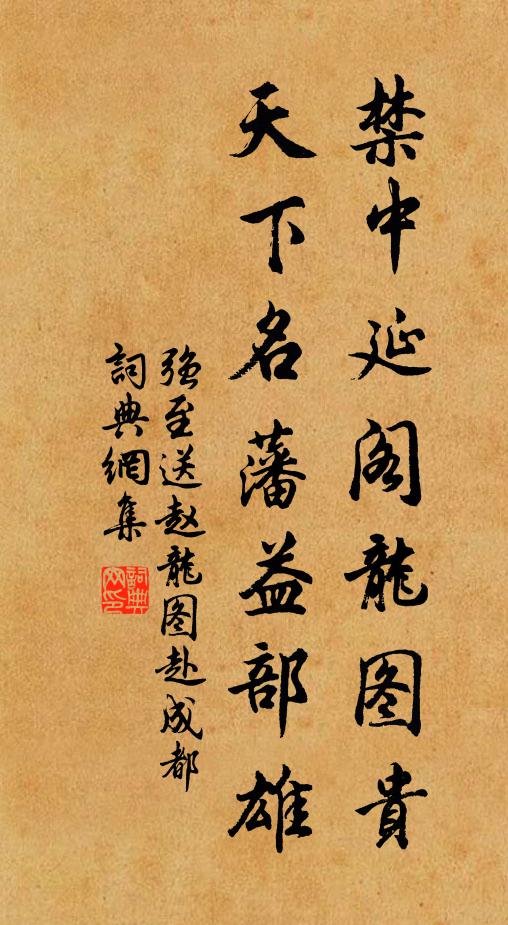 禁中延阁龍图貴
天下名藩益部雄
强至送赵龍图赴成都
詞典網集
詞典网印